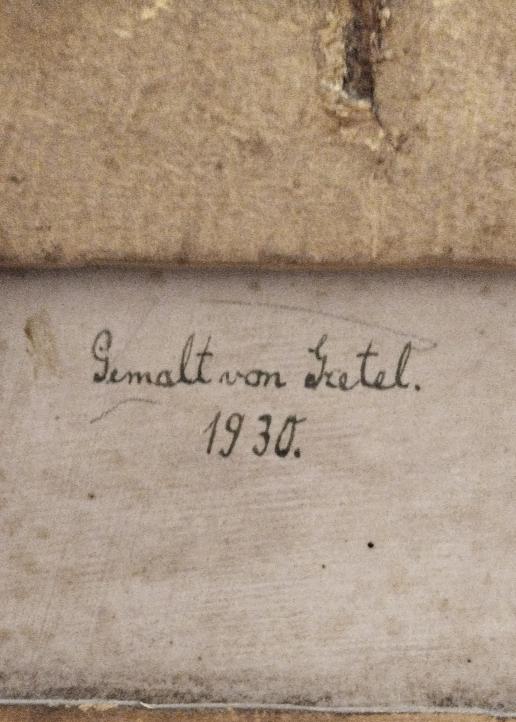 Gemalt von Gretel.
1930.